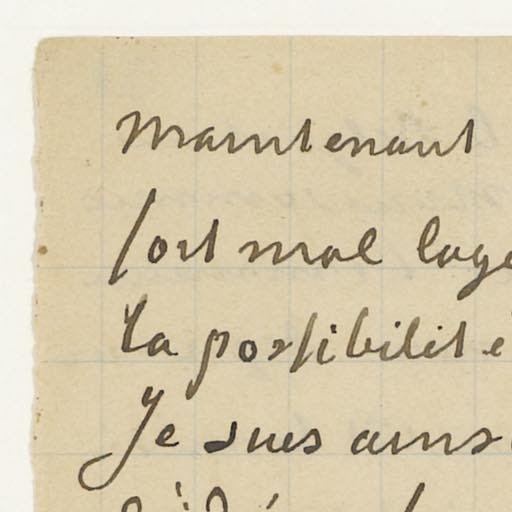 Maintenant
fort mal logé
la possibilité
Je suis ainsi